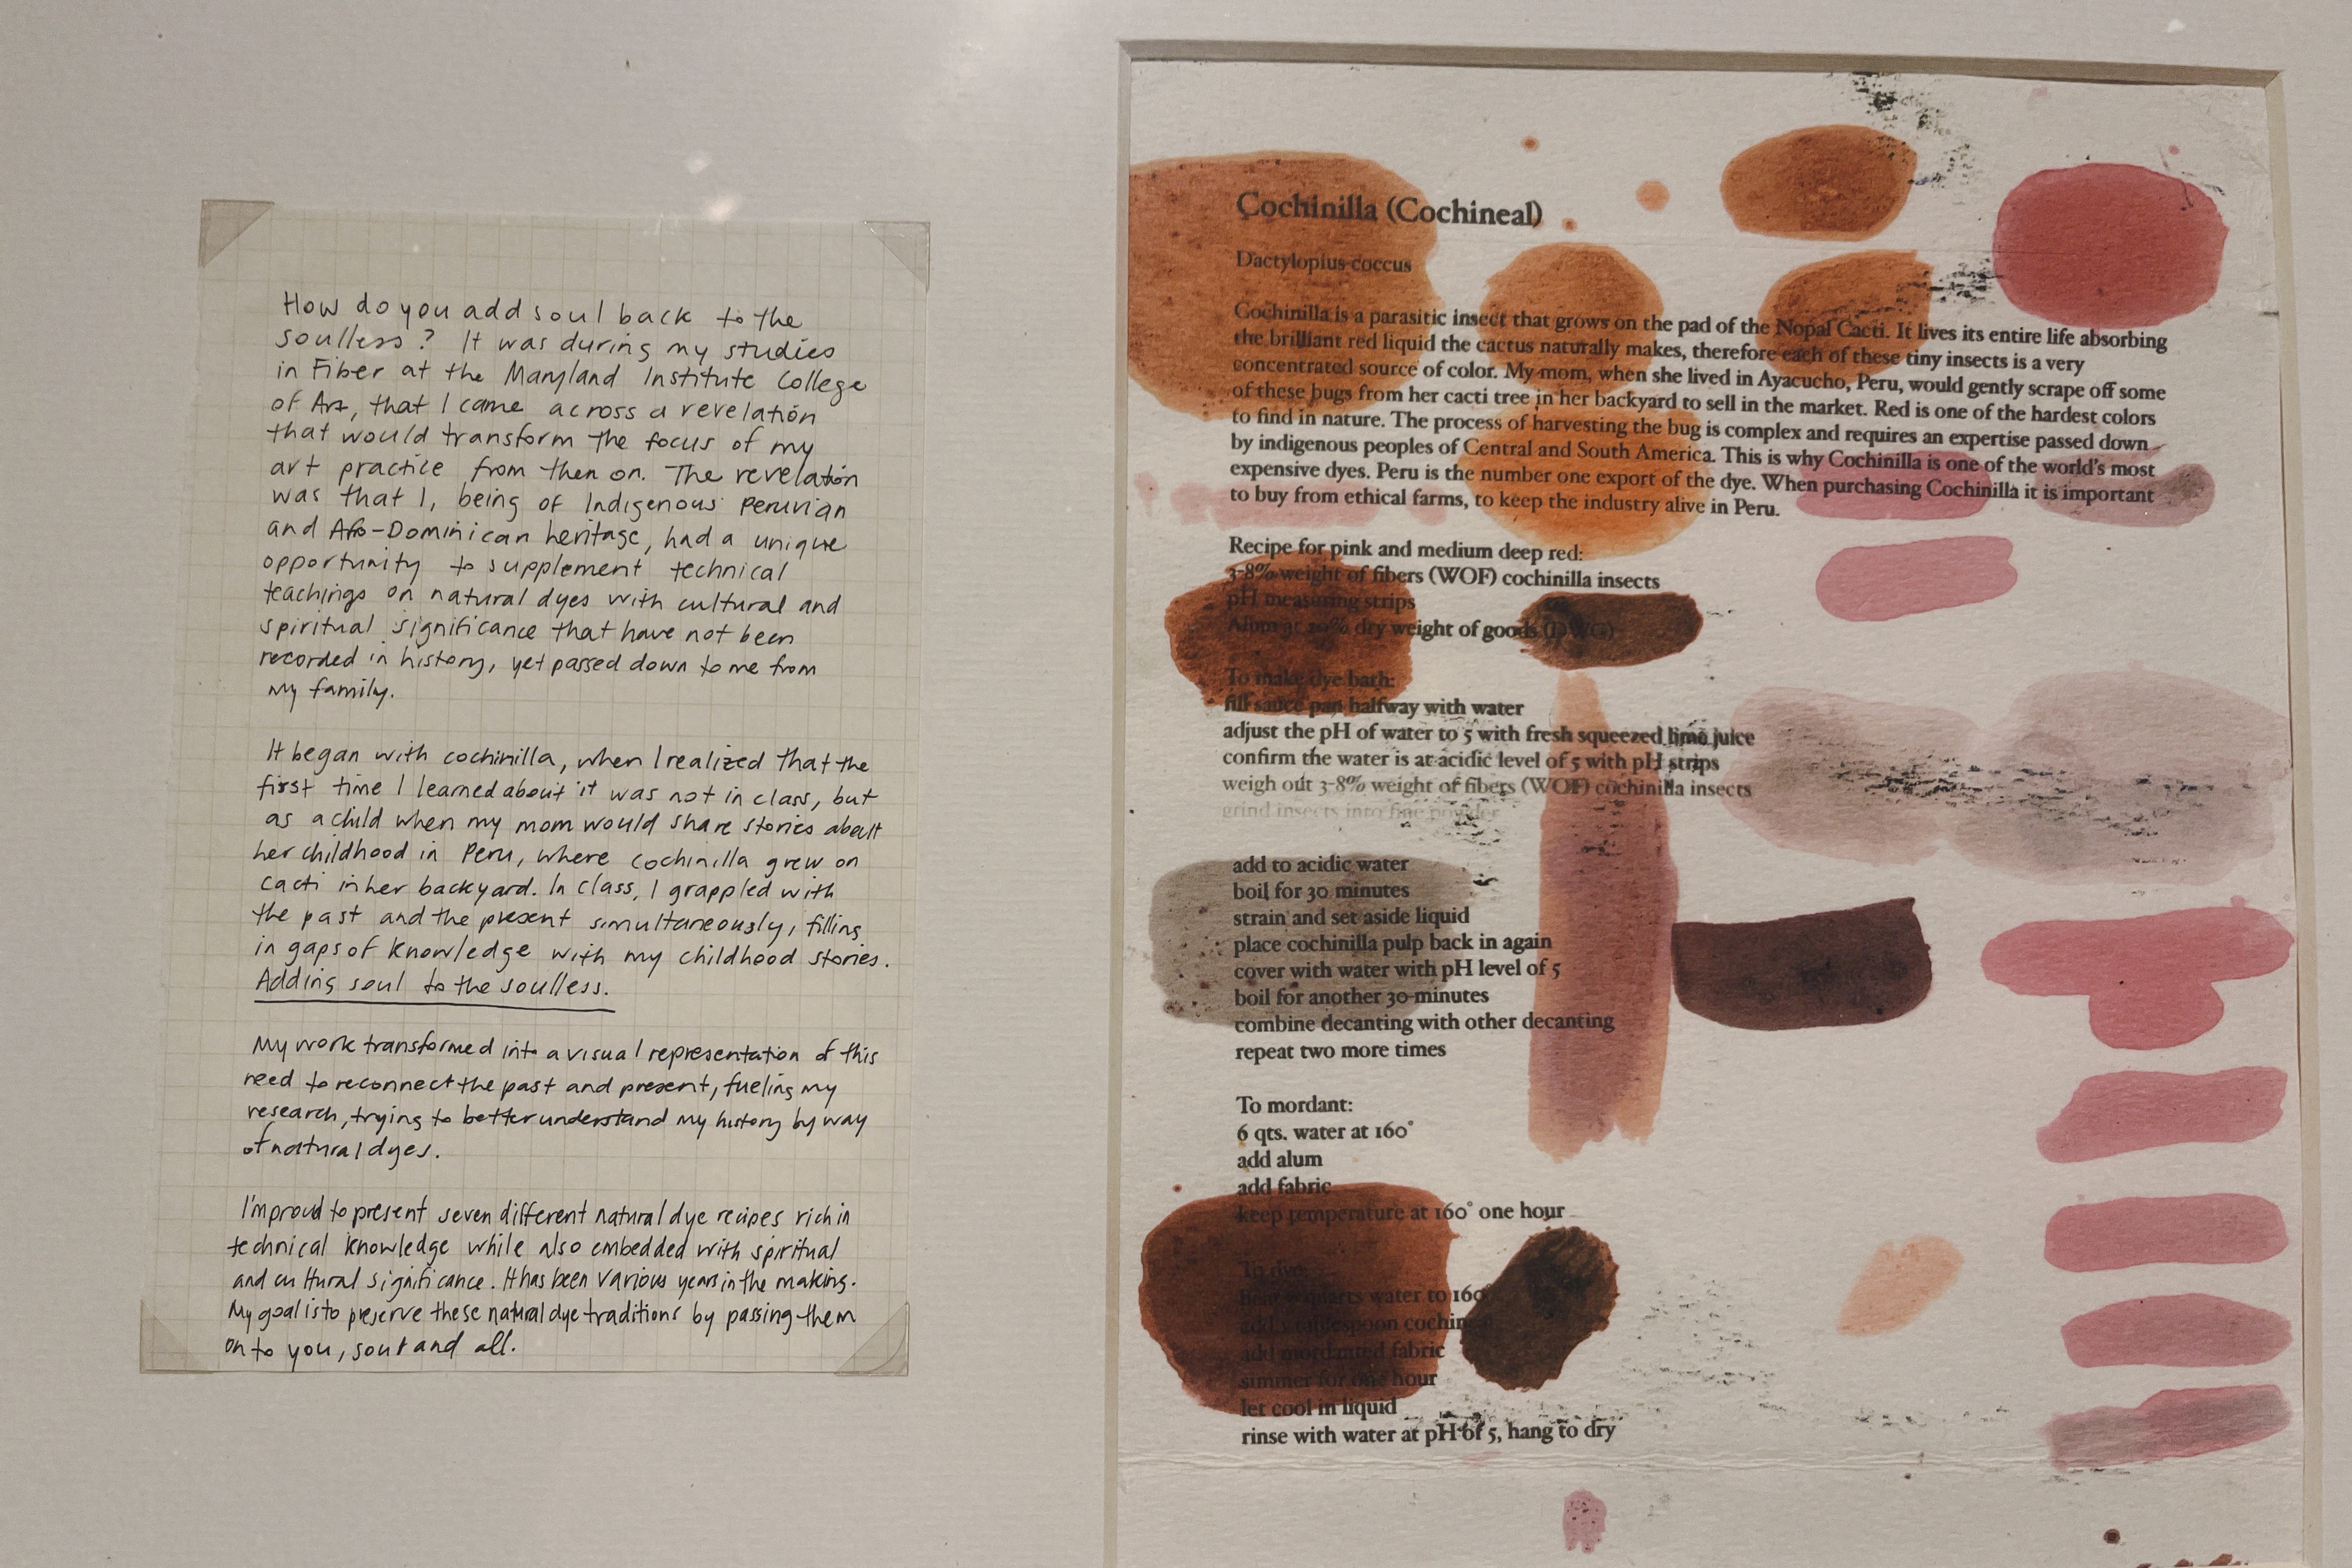 How do you add soul back to the
soulless? It was during my studies
in Fiber at the Maryland Institute College
of Art, that I came across a revelation
that would transform the focus of my
art practice from then on. The revelation
was that I, being of Indigenous Peruvian
and Afro-Dominican heritage, had a unique
opportunity to supplement technical
teachings on natural dyes with cultural and
spiritual significance that have not been
recorded in history, yet passed down to me from
my family.
It began with cochinilla, when I realized that the
first time I learned about it was not in class, but
as a child when my mom would share stories about
her childhood in Peru, where cochinilla grew on
cacti in her backyard. In class, I grappled with
the past and the present simultaneously, filling
in gaps of knowledge with my childhood stories.
Adding soul to the soulless.
My work transformed into a visual representation of this
need to reconnect the past and present, fueling my
research, trying to better understand my history by way
of natural dyes.
I'm proud to present seven different natural dye recipes rich in
technical knowledge while also embedded with spiritual
and cultural significance. It has been various years in the making.
My goal is to preserve these natural dye traditions by passing them
on to you, soul and all.
Cochinilla (Cochineal)
Dactylopius coccus
Cochinilla is a parasitic insect that grows on the pad of the Nopal Cacti. It lives its entire life absorbing
the brilliant red liquid the cactus naturally makes, therefore each of these tiny insects is a very
concentrated source of color. My mom, when she lived in Ayacucho, Peru, would gently scrape off some
of these bugs from her cacti tree in her backyard to sell in the market. Red is one of the hardest colors
to find in nature. The process of harvesting the bug is complex and requires an expertise passed down
by indigenous peoples of Central and South America. This is why Cochinilla is one of the world's most
expensive dyes. Peru is the number one export of the dye. When purchasing Cochinilla it is important
to buy from ethical farms, to keep the industry alive in Peru.
Recipe for pink and medium deep red:
3-8% weight of fibers (WOF) cochinilla insects
pH measuring strips
Alum at dry weight of goods (DWG)
To make dye bath:
fill sauce pan halfway with water
adjust the pH of water to 5 with fresh squeezed lime juice
confirm the water is at acidic level of 5 with pH strips
weigh out 3-8% weight of fibers (WOF) cochinilla insects
grind insects into fine powder
add to acidic water
boil for 30 minutes
strain and set aside liquid
place cochinilla pulp back in again
cover with water with pH level of 5
boil for another 30 minutes
combine decanting with other decanting
repeat two more times
To mordant:
6 qts. water at 160°
add alum
add fabric
keep temperature at 160° one hour
To dye:
heat quarts water to 160
add tablespoon
add mordanted fabric
simmer for one hour
let cool in liquid
rinse with water at pH of 5, hang to dry